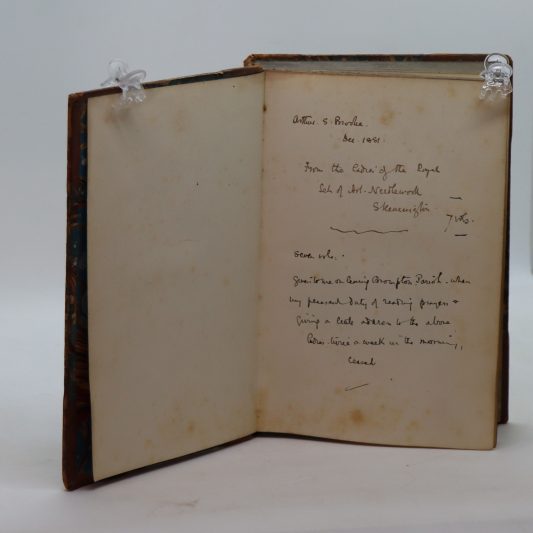 Arthur S. Brooke.
Dec. 1881.
From the Ladies of the Royal
Sch of Art. Needlework
S. Kensington
7 vols.
Seven vols.
Given to me on leaving Brompton Parish. when
my pleasant duty of reading prayers &
giving a little address to the above
Ladies twice a week in the morning,
ceased